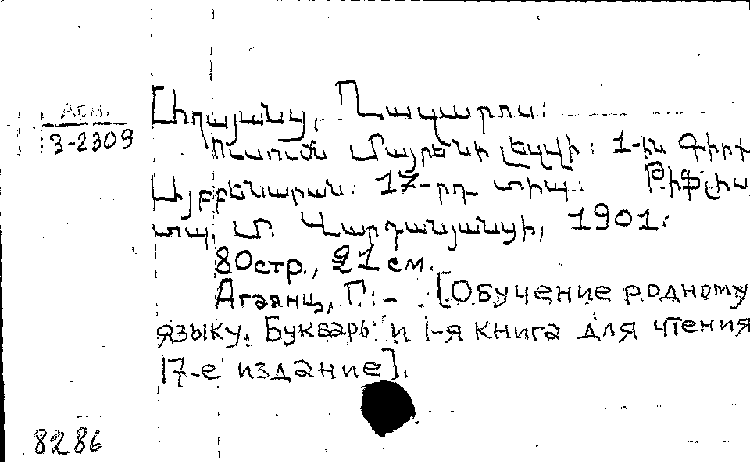 Асп.
3-2309
Աղայանց, Ղազարոս:
Ուսումն մայրենի լեզվի: 1-ին գիրք
Այբբենարան. 17-րդ տիպ.: Թիֆլիս
տպ. Մ. Վարդանյանցի, 1901:
80стр., 21 см.
Агаянц, Г. - [Обучение родному
языку. Букварь и 1-я книга для чтения
17-е издание].
8286